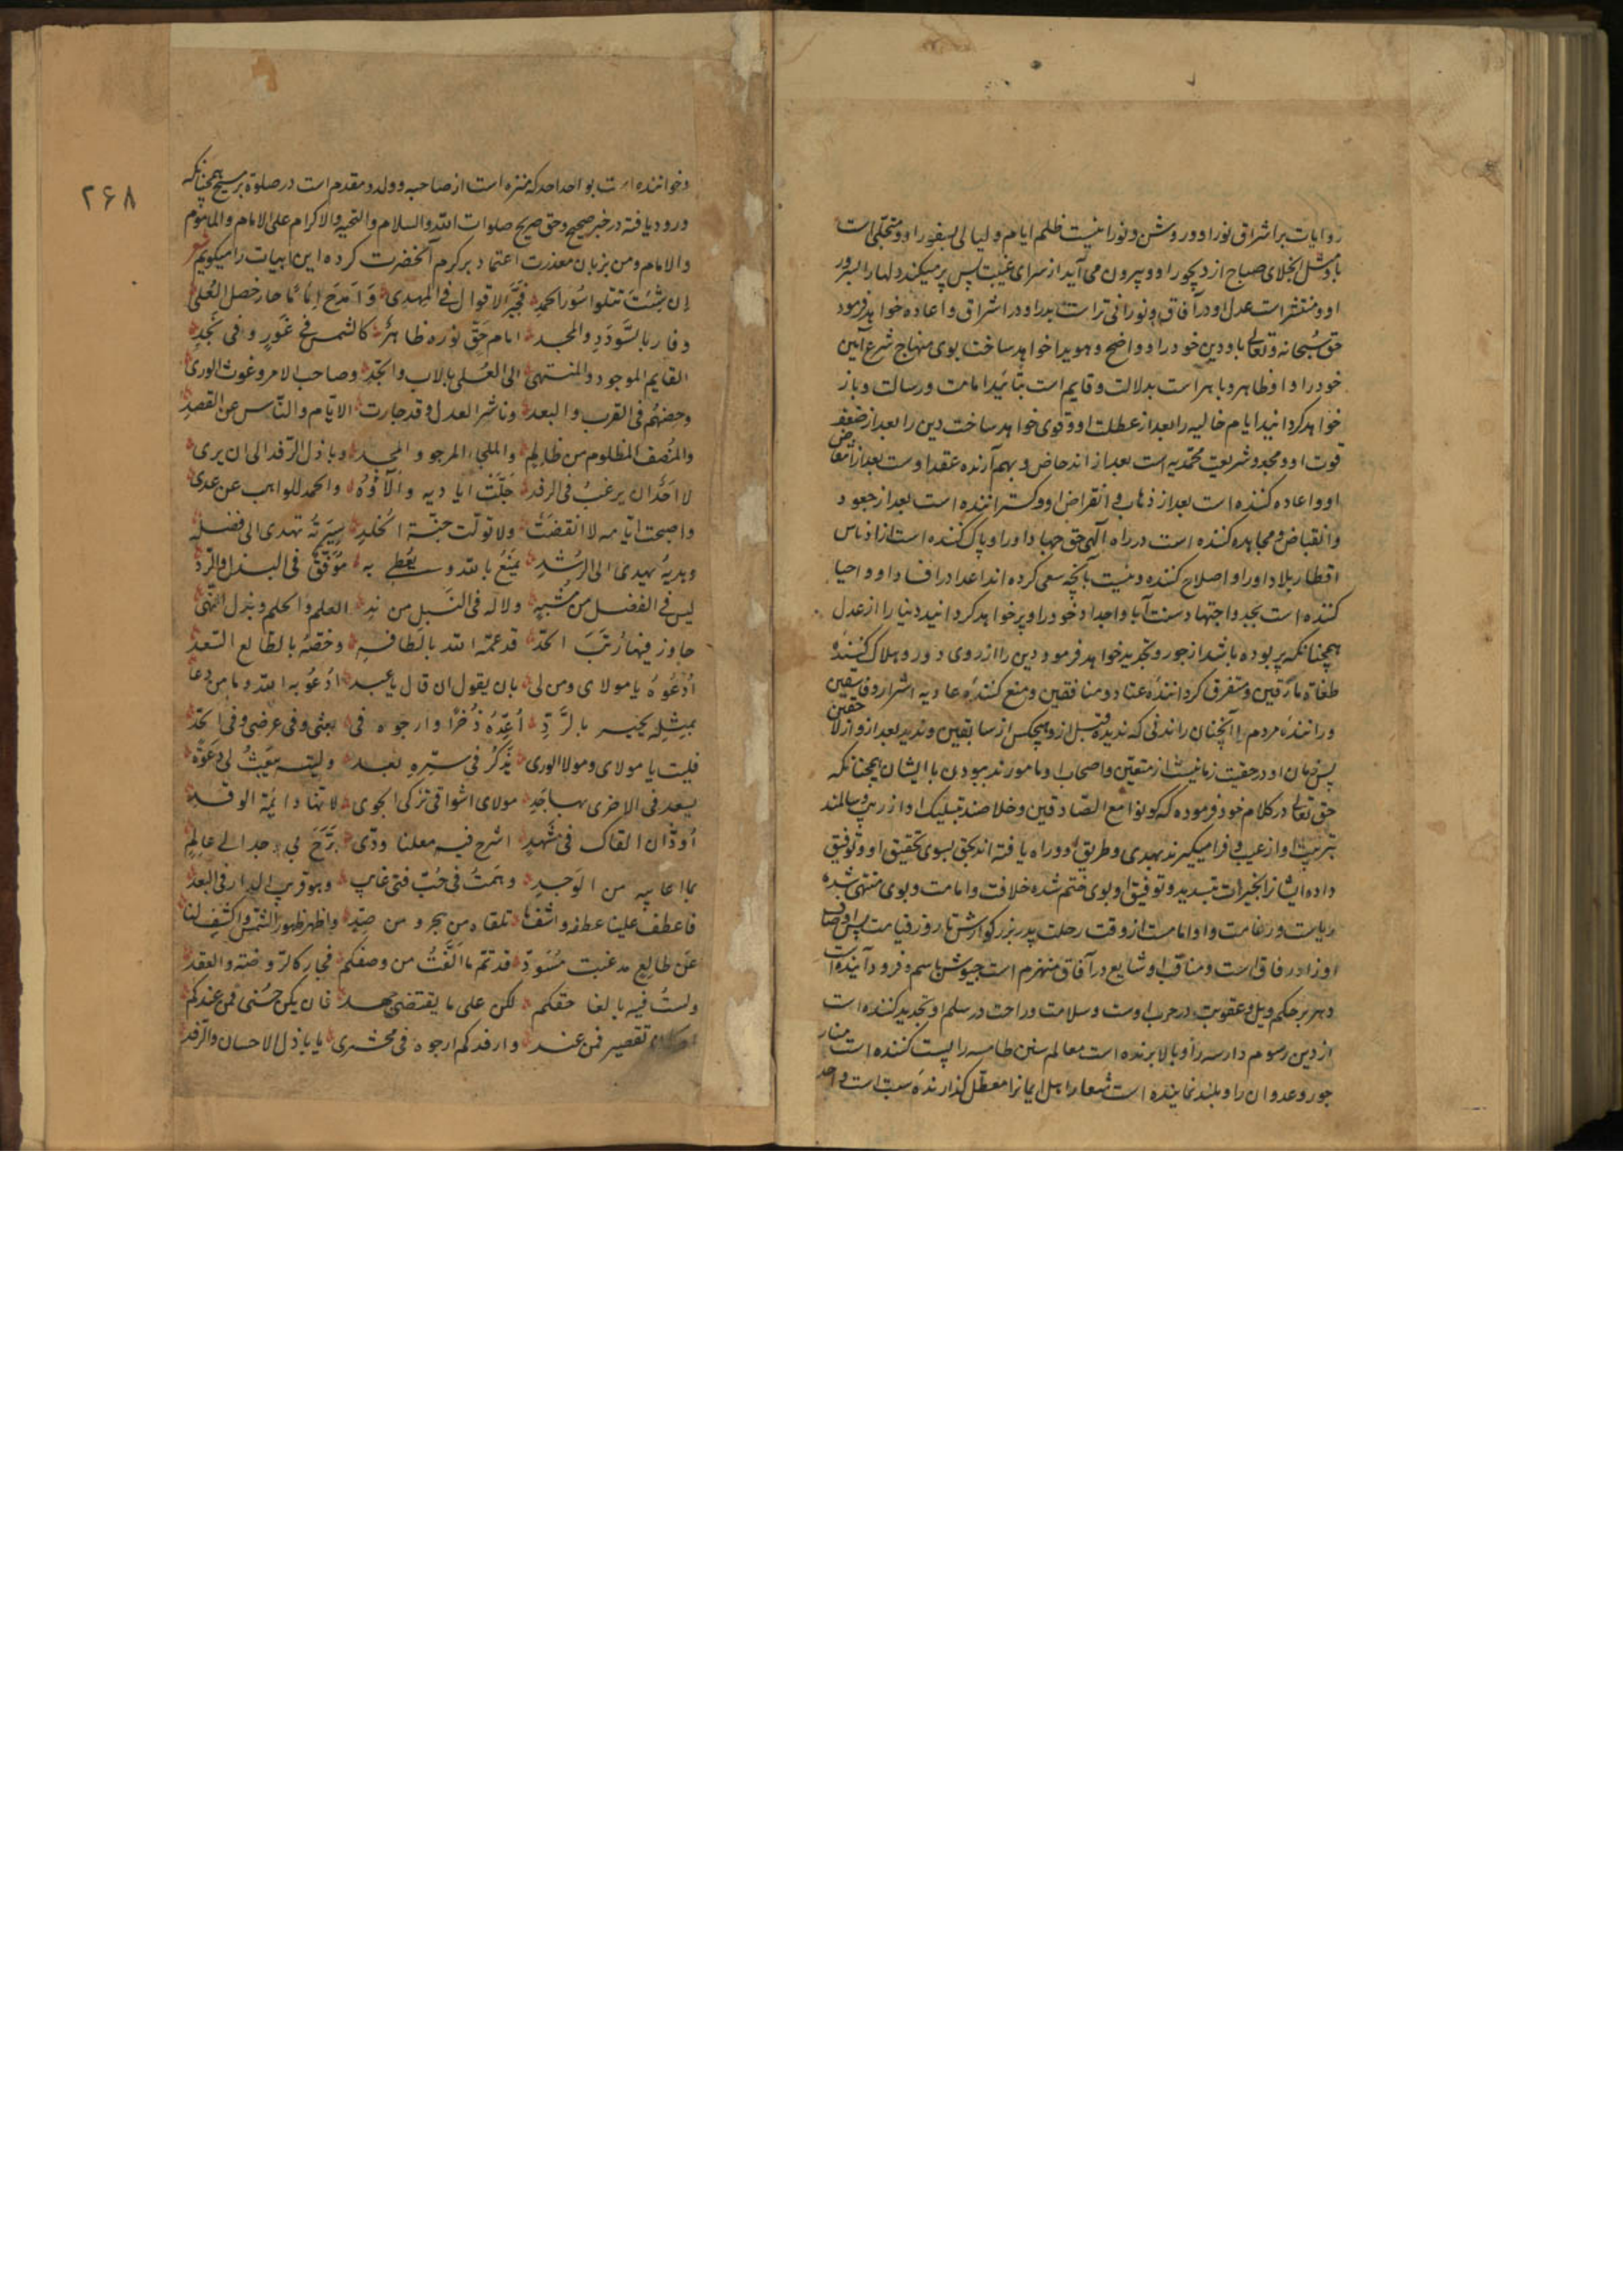 روایات بر اشراق نور او و روشن و نورانیست ظلم ایام و لیالی بسفور او و متجلی است
باو مثل انجلای صباح از دیجور او و بیرون می آید از سرای غیبت پس پر میکند دلها را بسرور
او و منتشر است عدل او در آفاق و نورانی تر است بدر او در اشراق و اعاده خواهد فرمود
حق سبحانه و تعالی باو دین خود را و واضح و هویدا خواهد ساخت بوی منهاج شرع آئین
خود را و او ظاهر و باهر است بدلالت و قایم است بتائید امامت و رسالت و باز
خواهد کردانید ایام خالیه را بعد از عطلت او و قوی خواهد ساخت دین را بعد از ضعف
قوت او و مجدد شریعت محمدیه است بعد از اندحاض و بهم آرنده عقد اوست بعد از انتقاض
او و اعاده کننده است بعد از ذهاب و انقراض او و کستراننده است بعد از جعود
و انقباض و مجاهده کننده است در راه آلهی حق جهاد او را و پاک کننده است از ادناس
اقطار بلاد او را و اصلاح کننده و نیست بانچه سعی کرده اند اعدا در افساد او و احیا
کننده است بجد و اجتهاد سنت آبا و اجداد خود را و پر خواهد کردانید دنیا را از عدل
همچنانکه پر بوده باشد از جور و تجدید خواهد فرمود دین را از روی دور و هلاک کنندهٔ
طغاة مارقین و متفرق کردانندهٔ عناد و منافقین و منع کنندهٔ عادیه اشرار و فاسقین
و رانندهٔ مردم را آنچنان راندنی که ندیده قبل از و هیچکس از سابقین و ندید بعد از و از لاحقین
پس زمان او در حقیقت زمانیست از متقین و اصحاب او مامورند ببودن با ایشان همچنانکه
حق تعالی در کلام خود فرموده که کونوا مع الصادقین و خلاصند بتسلیک او از ریب و سالمند
بتربیت او از عیب و فرا میکیرند بهدی و طریق او و راه یافته اند بحق بسوی تحقیق او و توفیق
داده ایشانرا بخیرات بتسدید و توفیق او بوی ختم شده خلافت و امامت و بوی منتهی شده
ریاست و زعامت و او امامت از وقت رحلت پدر بزرکوارش تا روز قیامت پس اوصاف
او زاد رفاق است و مناقب او شایع در آفاق منهزم است جیوش باسم و فرود آینده است
دهر بر حکم ویل و عقوبت در حرب اوست و سلامت و راحت در سلم او تجدید کننده است
از دین رسوم دارسه را و بالا برنده است معالم سنن طامسه را پست کننده است منار
جور و عدوان را و بلند نماینده است شعار اهل ایمانرا معطل کذارندهٔ سبت است و احد
۲۶۸
و خواننده است بواحد احد که منزه است از صاحبه و ولد و مقدم است در صلوة بر مسیح همچنانکه
ورود یافته در خبر صحیح و حق صریح صلوات الله و السلام و التحیه و الاکرام علی الامام و الماموم
و الامام و من بزبان معذرت اعتماد بر کرم آنحضرت کرده این ابیات را میکویم شعر
إن شئت تتلوا سُوَر الحمدِ فخیر الاقوال فی المهدی وَامدَح اِمَامًا حازَ خصل العُلی
و فاز بالسُّودَدِ و المجد امام حَقٍّ نوره ظاهرٌ کالشمس فی غَورٍ و فی نجدِ
القایم الموجود و المنتهی الی العُلی بالاب و الجَدِّ و صاحب الامر و غوث الوری
و حصنهُم فی القرب و البعد و ناشر العدل و قد جارت الایّام و النّاس عن القصدِ
و المُنصف المظلوم من ظالمٍ و الملجاء المرجو و المجد و باذل الرّفد الی ان یری
لا احَدٌ ان یرغبُ فی الرفد جلّت ایادیه و آلاؤُه و الحمد للواهب عن عدی
و اصبحت ایّامه لا انقضَت و لا تولّت جنّة الخلدِ سِیرَتُه تهدی الی فضله
و هدیهُ یهدی الی الرُّشدِ یمنَعُ بالله و یُعطی به مُوَفّقٌ فی البذل و الرّدِّ
لیس فی الفضل من مُشبِهٍ و لا له فی النّبل من نِد العلم و الحلم و بذل النهی
جاوز فیها رُتَبَ الحدّ قد عمّه الله بالطافهِ و خصّهُ بالطالع السّعد
اُدعُوهُ یا مولای و من لی بان یقول ان قال یا عبد ادعُو به الله و ما من دعا
بمِثلِه یجیه بالرَّدِّ أعِدّهُ ذُخرًا و ارجوه فی بعثی و فی عرضی و فی الحدّ
فلیت یا مولای و مولا الوری یذکرُ فی سِرّهِ لعبد و لیته یَبعثُ لی دعوَةً
یسعد فی الاخری بها جَدِّ مولای اشواقی تُزکی الجوی لانها دایمَة الوقدِ
أودُّ ان القاک فی مشهدٍ اشرح فیه معلنا ودّی بَرَّحَ بی وجد الی عالِمٍ
بما اعانیه من الوَجدِ و همتُ فی حُبّ فتی غایب و هو قریب الدار فی البعد
فاعطف علینا عطفه و اشف ما تلقاه من هجر و من صَدٍّ و اظهر ظهور الشّمس و اکشف لنا
عن طالعٍ مذ غبت مُسوَدِّ قد تمّ ما الّفتُ من وصفکم فجاء کالرّوضة و العقد
و لستُ فیه بالغا حقکم لکن علی ما یقتضی جهد فان یکن حُسنی فمن عندکم
تقصیر فمن عند و ارفدکم ارجوه فی محشری یا باذل الاحسان و الرّفد